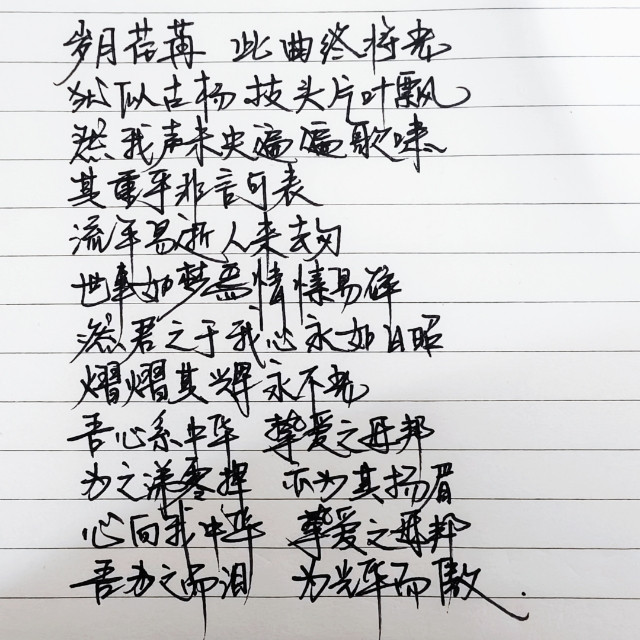 岁月荏苒 此曲终将老
犹似古杨枝头片叶飘
然我声未央遍遍歌唻
其重乎非言可表
流年易逝人来去匆
世事如梦恶情愫易碎
然君之于我心永如日昭
熠熠其辉永不老
吾心系中华 挚爱之邦
为之涕零挥 亦为其扬眉
心向我中华 挚爱之邦
吾为之而泪 为光华而傲.